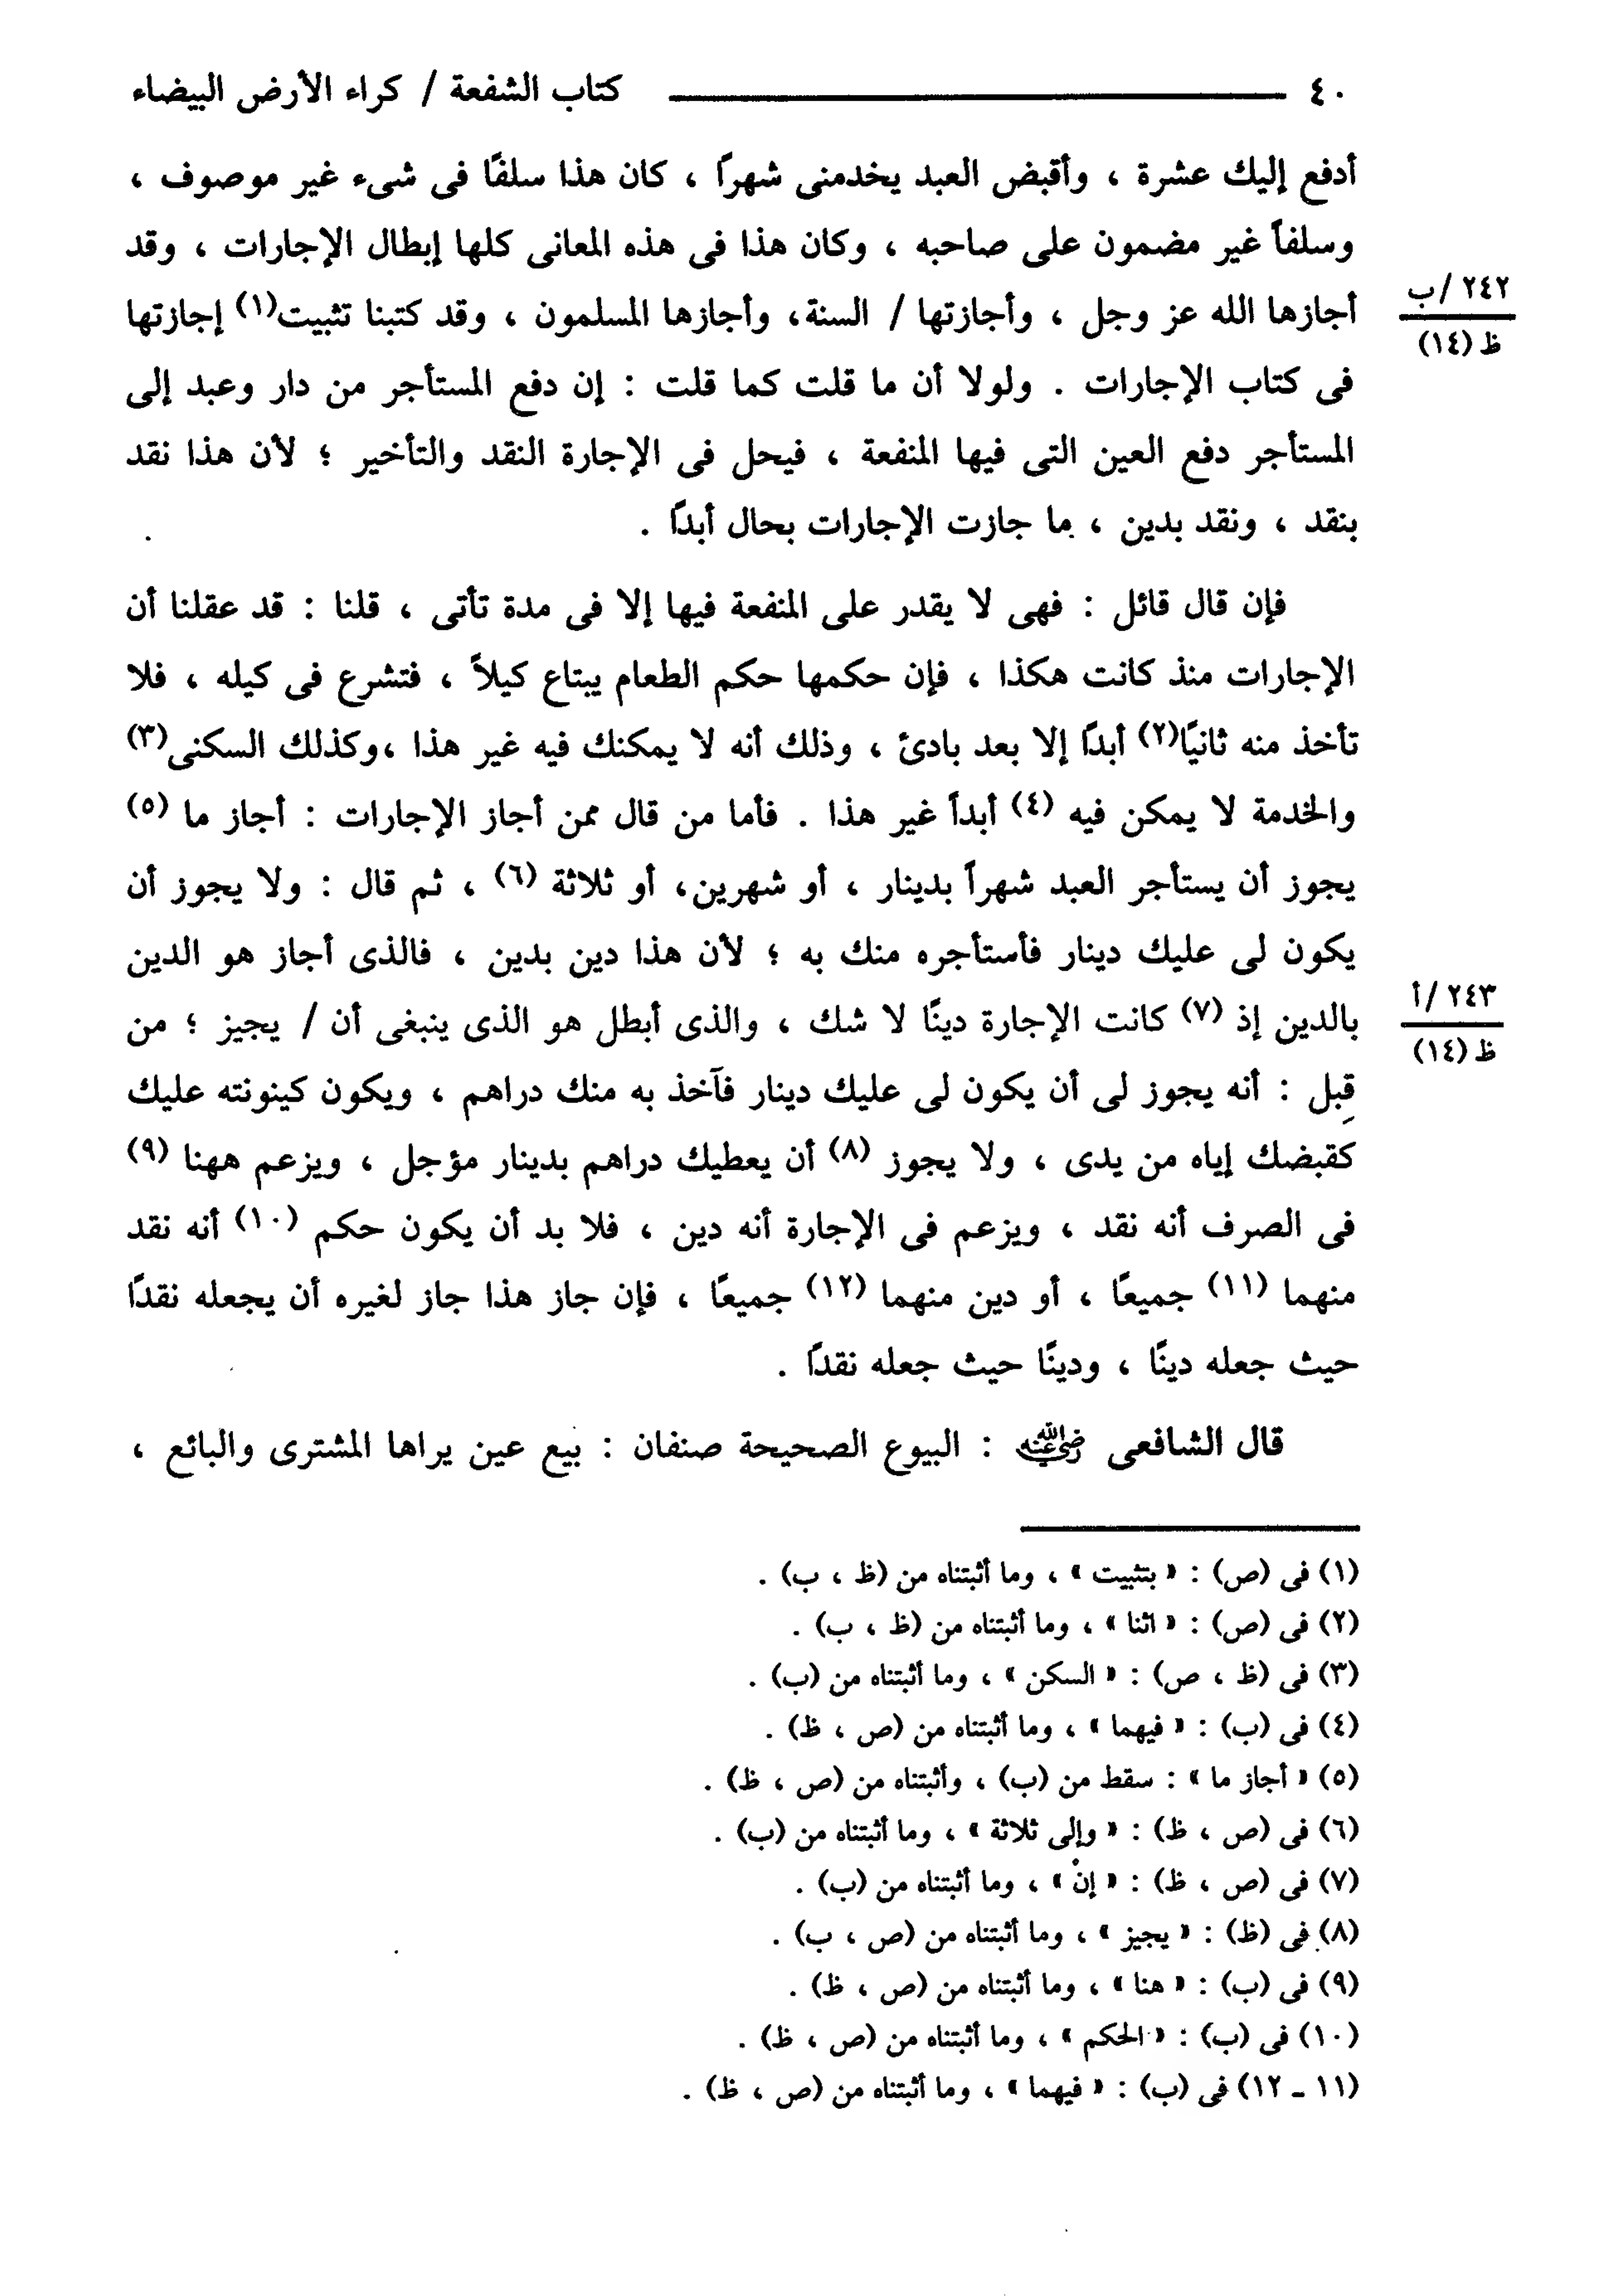 ٤٠ كتاب الشفعة / كراء الأرض البيضاء
أدفع إليك عشرة ، وأقبض العبد يخدمنى شهرًا ، كان هذا سلفًا فى شىء غير موصوف ،
وسلفاً غير مضمون على صاحبه ، وكان هذا فى هذه المعانى كلها إبطال الإجارات ، وقد
أجازها الله عز وجل ، وأجازتها / السنة، وأجازها المسلمون ، وقد كتبنا تثبيت(١) إجازتها
٢٤٢ /ب
ظ (١٤)
فى كتاب الإجارات . ولولا أن ما قلت كما قلت : إن دفع المستأجر من دار وعبد إلى
المستأجر دفع العين التى فيها المنفعة ، فيحل فى الإجارة النقد والتأخير ؛ لأن هذا نقد
بنقد ، ونقد بدين ، ما جازت الإجارات بحال أبدًا .
فإن قال قائل : فهى لا يقدر على المنفعة فيها إلا فى مدة تأتى ، قلنا : قد عقلنا أن
الإجارات منذ كانت هكذا ، فإن حكمها حكم الطعام يبتاع كيلاً ، فتشرع فى كيله ، فلا
تأخذ منه ثانيًا(٢) أبدًا إلا بعد بادئ ، وذلك أنه لا يمكنك فيه غير هذا ،وكذلك السكنى(٣)
والخدمة لا يمكن فيه (٤) أبداً غير هذا . فأما من قال ممن أجاز الإجارات : أجاز ما (٥)
يجوز أن يستأجر العبد شهراً بدينار ، أو شهرين، أو ثلاثة (٦) ، ثم قال : ولا يجوز أن
يكون لى عليك دينار فأستأجره منك به ؛ لأن هذا دين بدين ، فالذى أجاز هو الدين
بالدين إذ (٧) كانت الإجارة دينًا لا شك ، والذى أبطل هو الذى ينبغى أن / يجيز ؛ من
٢٤٣ /أ
ظ (١٤)
قِبل : أنه يجوز لى أن يكون لى عليك دينار فآخذ به منك دراهم ، ويكون كينونته عليك
كقبضك إياه من يدى ، ولا يجوز (٨) أن يعطيك دراهم بدينار مؤجل ، ويزعم ههنا (٩)
فى الصرف أنه نقد ، ويزعم فى الإجارة أنه دين ، فلا بد أن يكون حكم (١٠) أنه نقد
منهما (١١) جميعًا ، أو دين منهما (١٢) جميعًا ، فإن جاز هذا جاز لغيره أن يجعله نقدًا
حيث جعله دينًا ، ودينًا حيث جعله نقدًا .
قال الشافعى رضي الله عنه : البيوع الصحيحة صنفان : بيع عين يراها المشترى والبائع ،
(١) فى (ص) : « بتثبيت » ، وما أثبتناه من (ظ ، ب) .
(٢) فى (ص) : « اثنا » ، وما أثبتناه من (ظ ، ب) .
(٣) فى (ظ ، ص) : « السكن » ، وما أثبتناه من (ب) .
(٤) فى (ب) : « فيهما » ، وما أثبتناه من (ص ، ظ) .
(٥) « أجاز ما » : سقط من (ب) ، وأثبتناه من (ص ، ظ) .
(٦) فى (ص ، ظ) : « وإلى ثلاثة » ، وما أثبتناه من (ب) .
(٧) فى (ص ، ظ) : « إنْ » ، وما أثبتناه من (ب) .
(٨) فى (ظ) : « يجيز » ، وما أثبتناه من (ص ، ب) .
(٩) فى (ب) : « هنا » ، وما أثبتناه من (ص ، ظ) .
(١٠) فى (ب) : « الحكم » ، وما أثبتناه من (ص ، ظ) .
(١١ - ١٢) فى (ب) : « فيهما » ، وما أثبتناه من (ص ، ظ) .